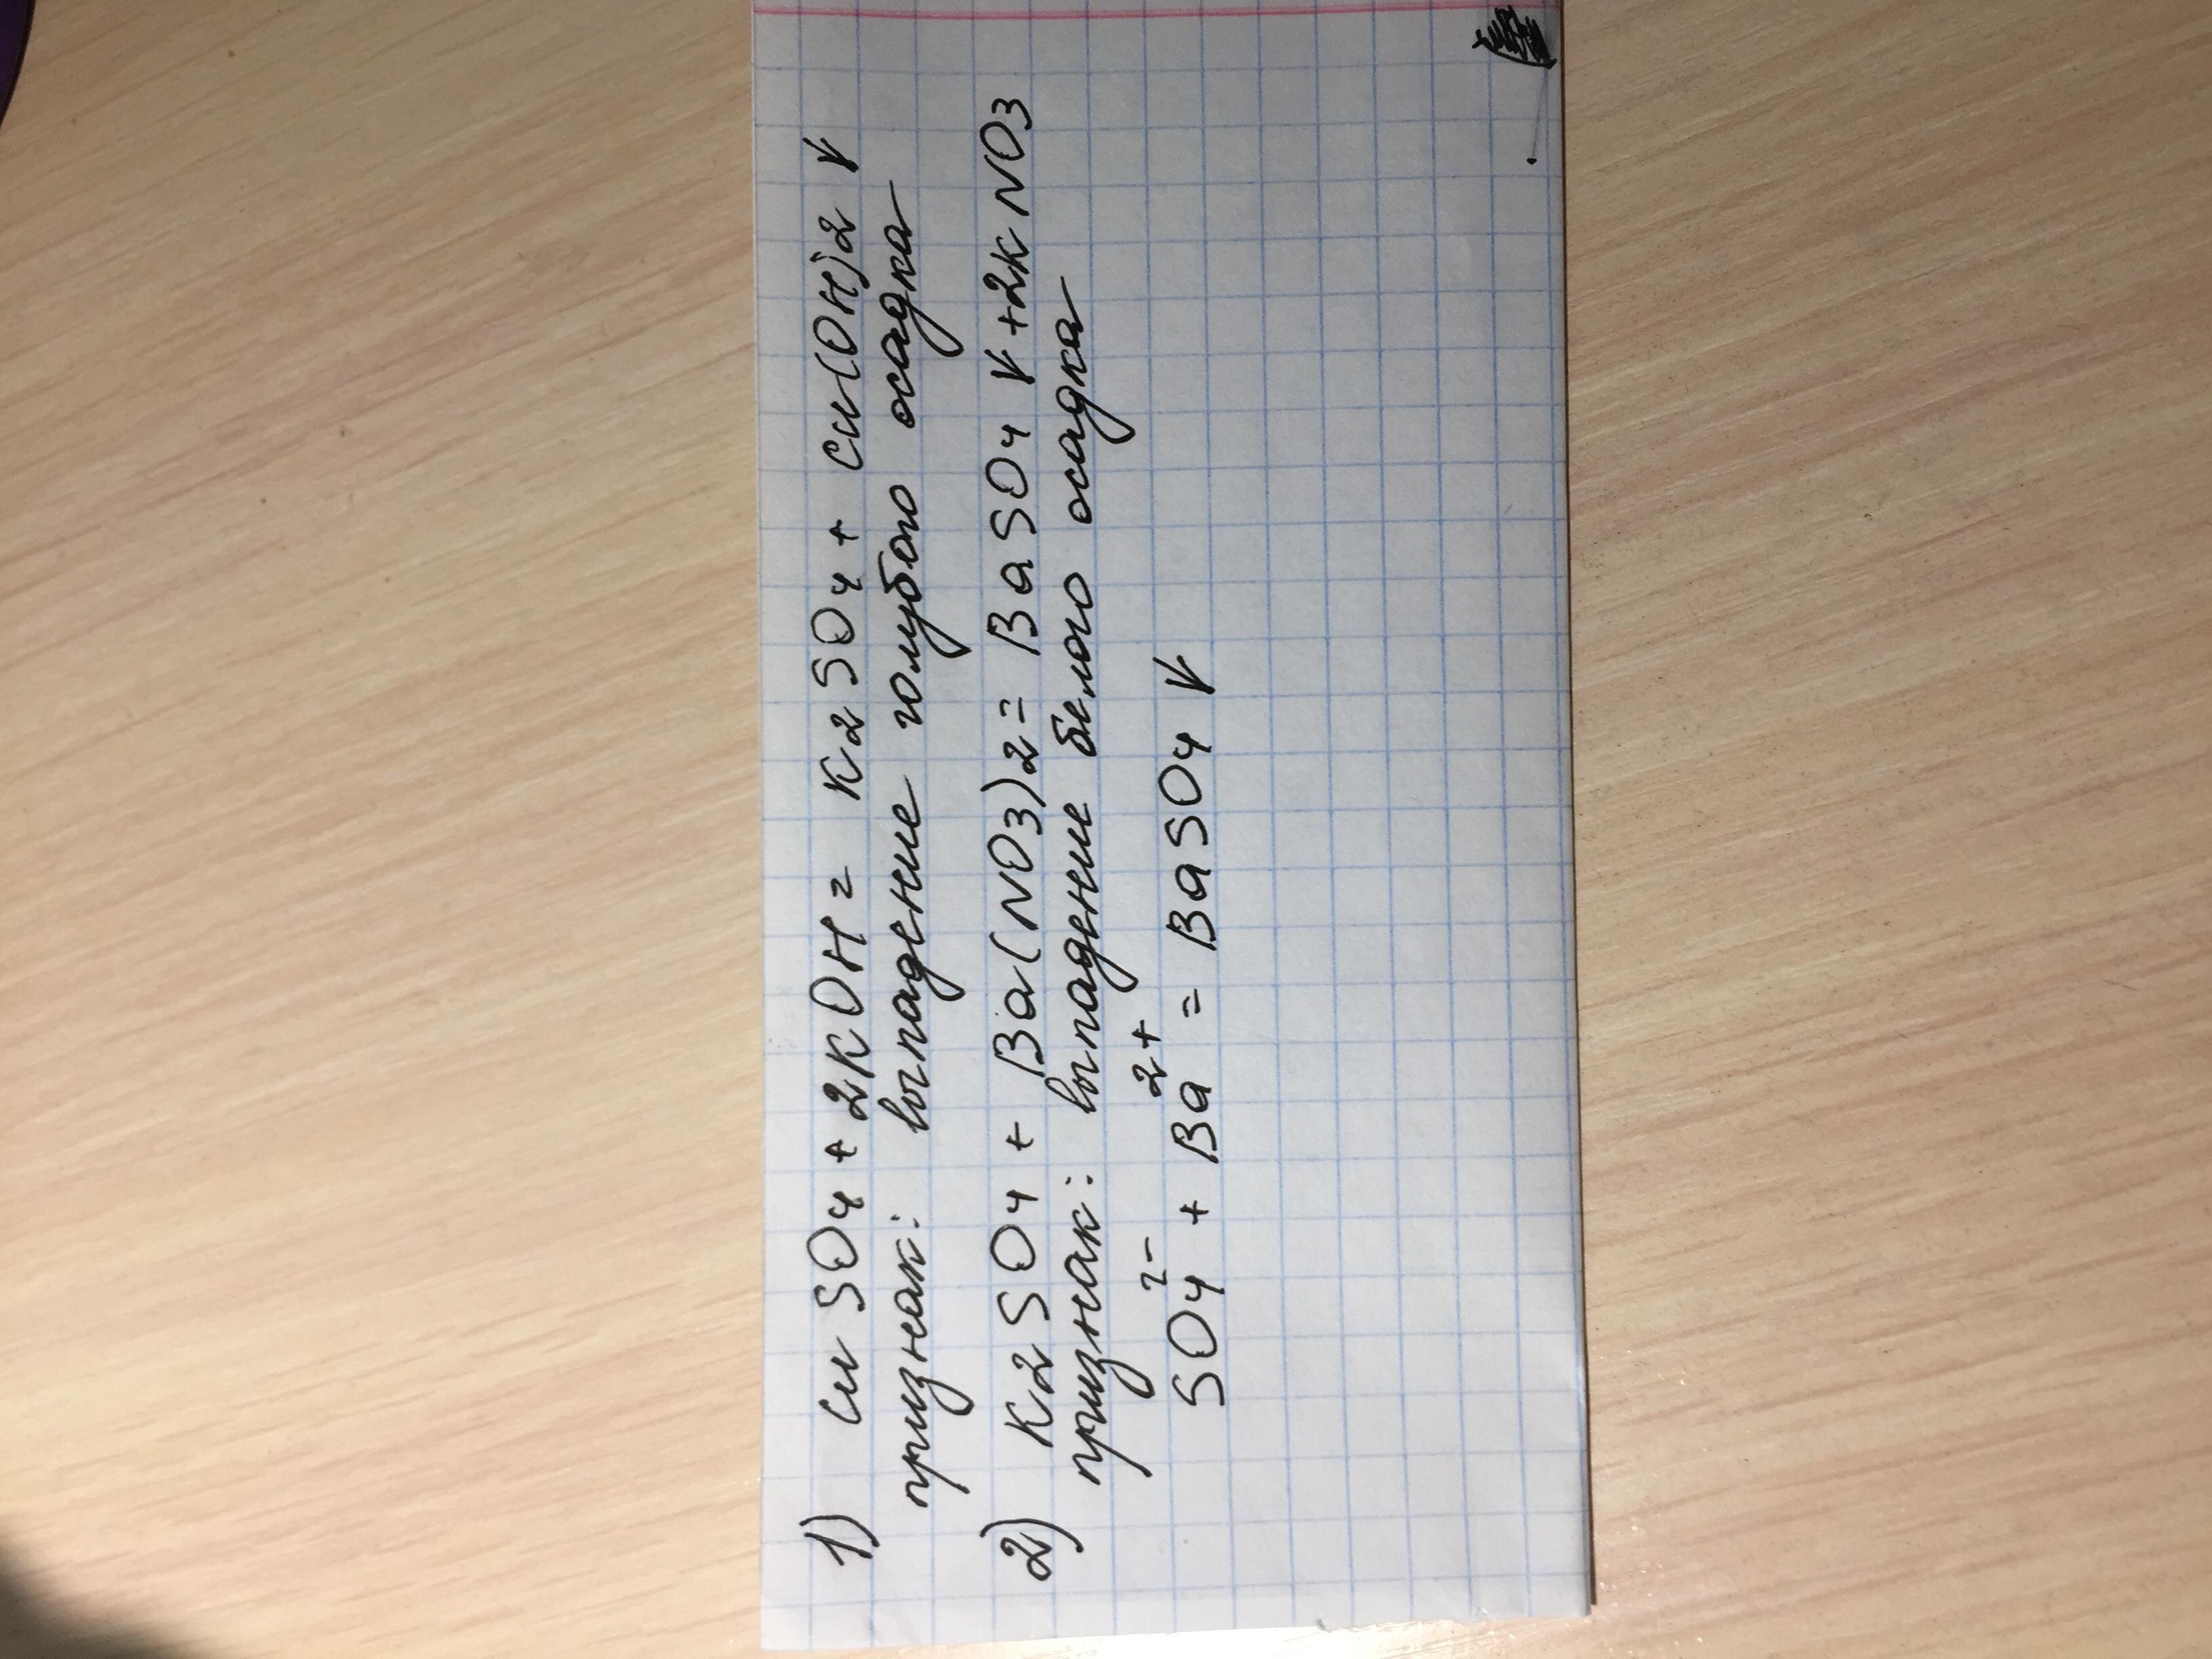 1) CuSO4 + 2KOH = K2SO4 + Cu(OH)2 ↓
признак: выпадение голубого осадка
2) K2SO4 + Ba(NO3)2 = BaSO4 ↓ + 2KNO3
признак: выпадение белого осадка
SO4²⁻ + Ba²⁺ = BaSO4 ↓